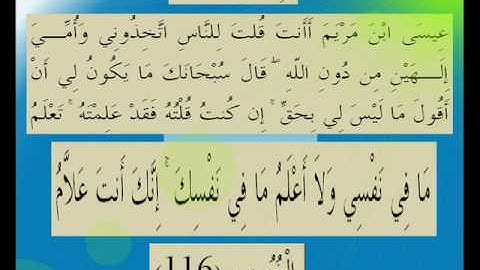 عِيسَى ابْنَ مَرْيَمَ أَأَنتَ قُلتَ لِلنَّاسِ اتَّخِذُونِي وَأُمِّيَ
إِلَـهَيْنِ مِن دُونِ اللّهِ ۖ قَالَ سُبْحَانَكَ مَا يَكُونُ لِي أَنْ
أَقُولَ مَا لَيْسَ لِي بِحَقٍّ ۚ إِن كُنتُ قُلْتُهُ فَقَدْ عَلِمْتَهُ ۚ تَعْلَمُ
مَا فِي نَفْسِي وَلاَ أَعْلَمُ مَا فِي نَفْسِكَ ۚ إِنَّكَ أَنتَ عَلاَّمُ
(116)